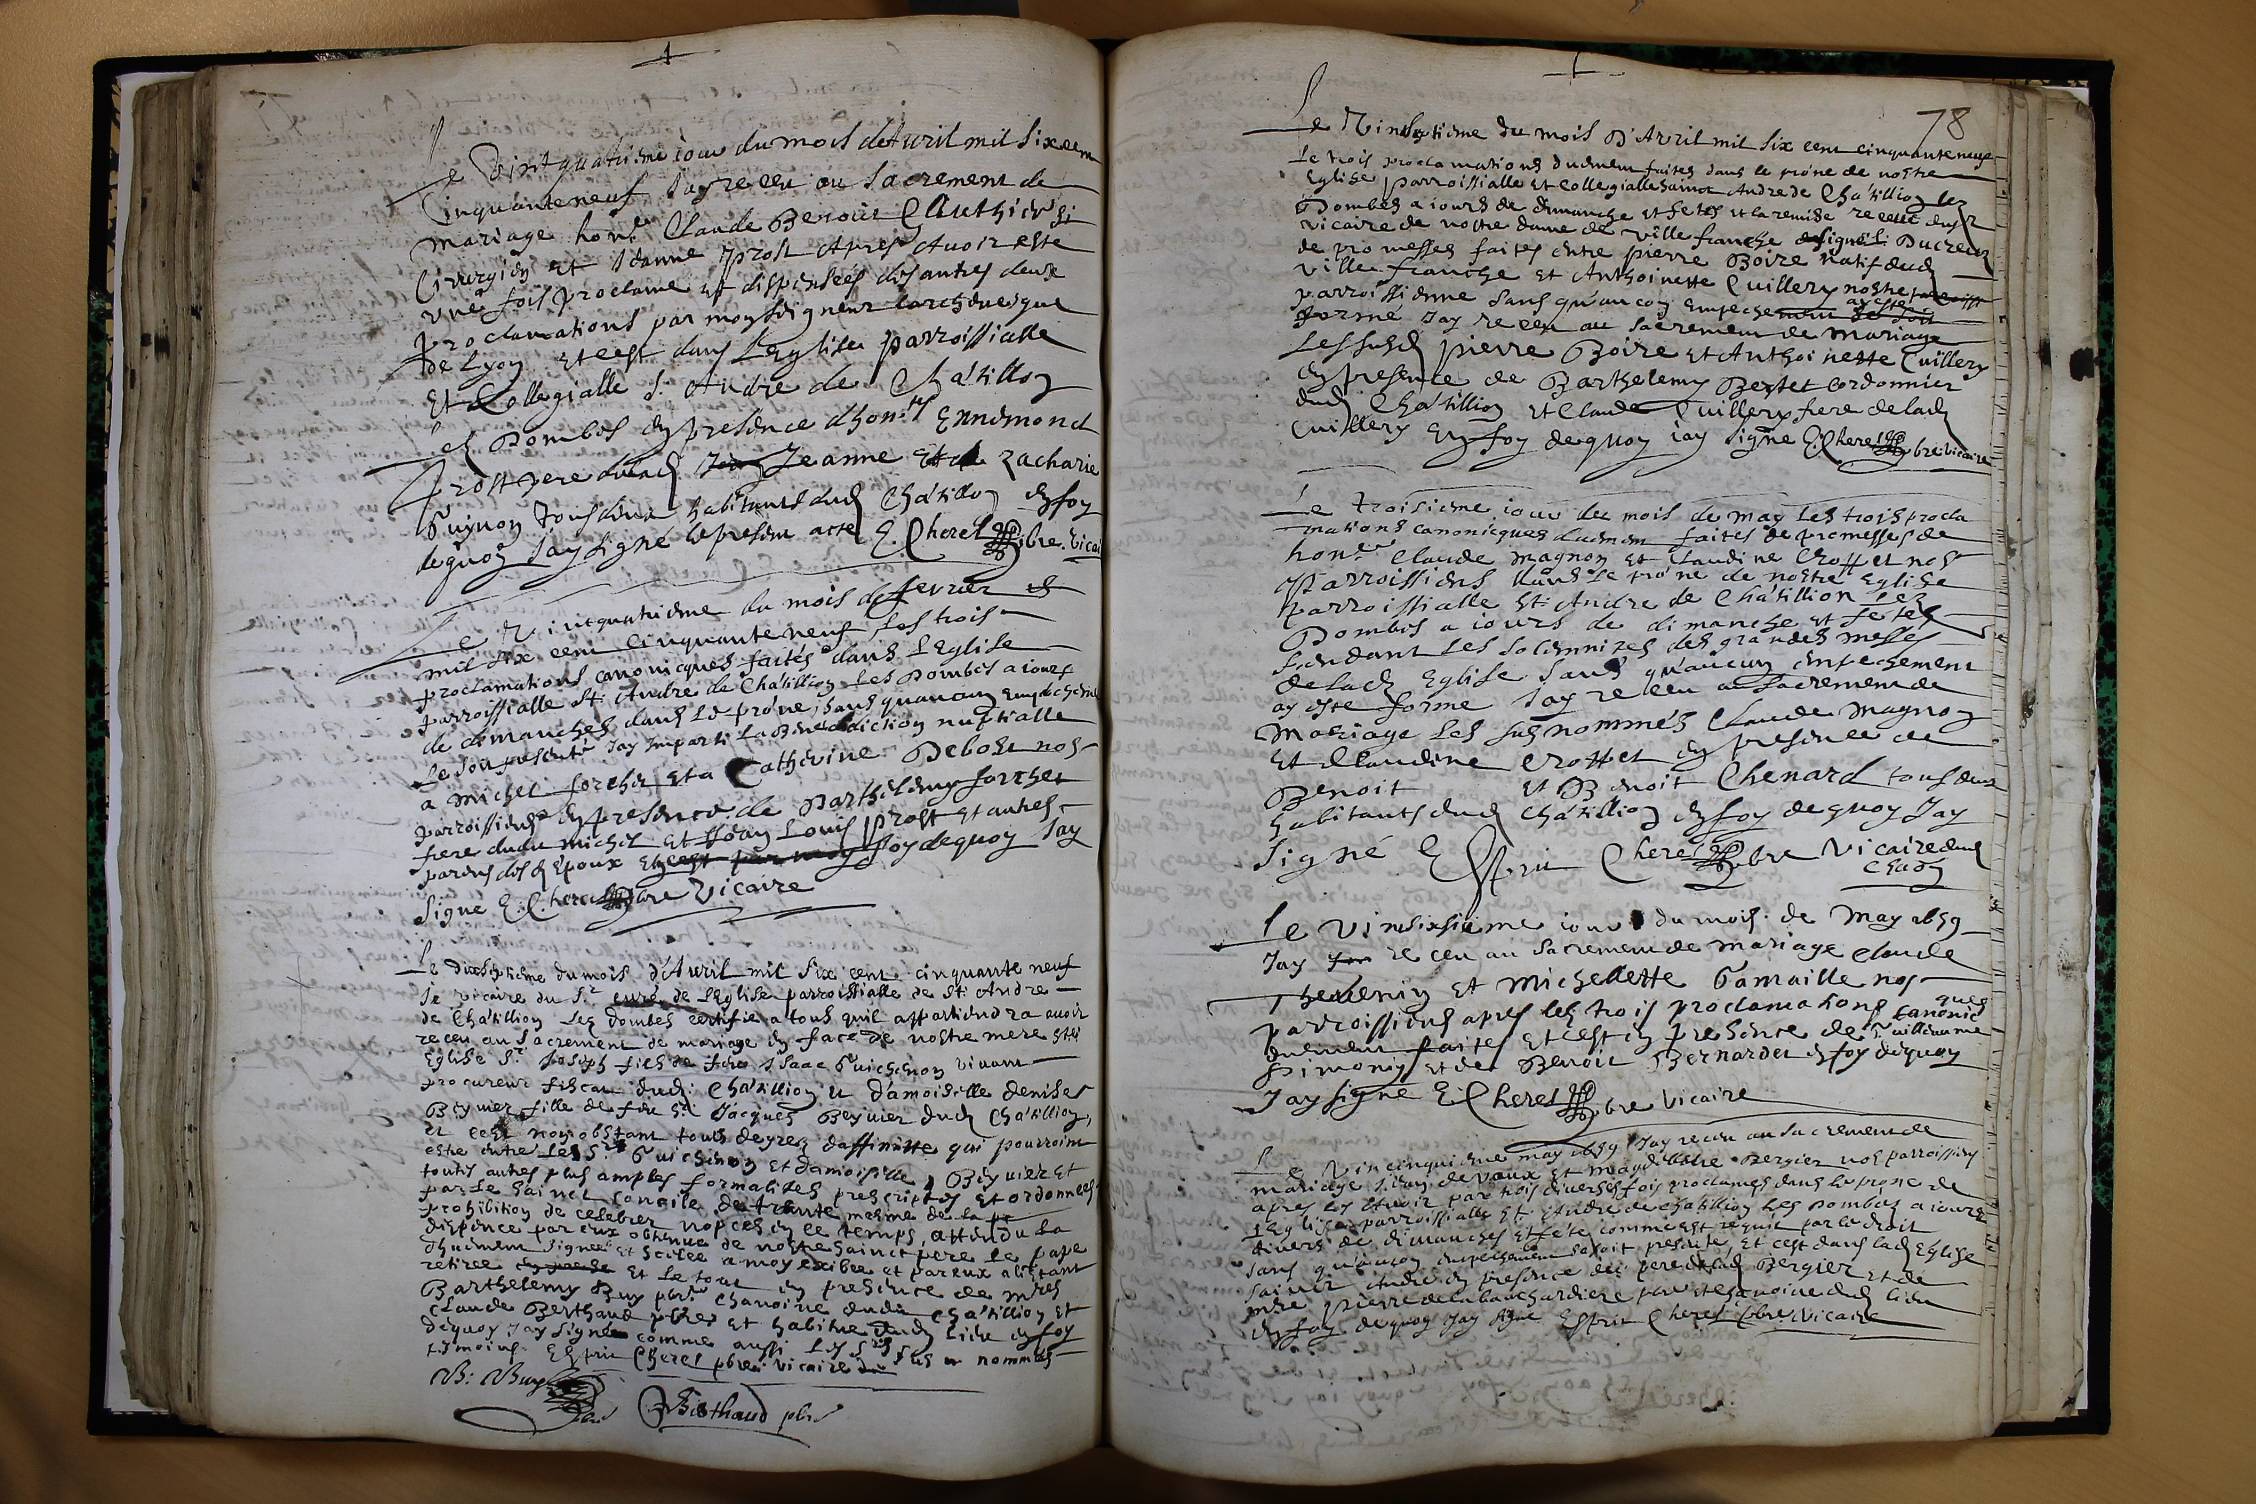 Le Vint quatrieme iour du mois de Avril mil six cent
Cinquante neuf Iay receu au Sacrement de
mariage Claude Benoit
Cirurgien et Ieanne prost Apres Avoir este
vne fois proclame et dispensés des autres deux
proclamations par monseigneur larcheuesque
de Lyon et cest dans LEglise parroissialle
Et Collegialle St Andre de Châtillon
les Dombes en presence dhon.tes Ennemond
Prost pere dud Jeanne Et de Zacharie
Guignon tous deux habitants dud Châtillon En foy
dequoy Iay signé le present acte E. Cheret pbre. vicai
Le Vintquatrieme du mois de fevrier
mil six cent Cinquante neuf les trois
proclamations canonicques faites dans LEglise
parroissialle St Andre de Châtillion Les Dombes a iours
de dimanches dans Le prône, sans quaucun Empechem
Le soit presenté Iay Imparti La Benediction nuptialle
a Michel forchet et a Catherine Debost nos
parroissiens En presence de Barthelemy forchet
frere dudit michel et Iean Louis prost et autres
parens desd Epoux En cest par moy foy dequoy Iay
Signe E. Cheret pbre Vicaire
Le dixseptieme du mois d'Avril mil six cent cinquante neuf
Ie vicaire du Sr curé de LEglise parroissialle de St Andre
de Châtillion Les dombes certifie a tous quil appartiendra avoir
receu au Sacrement de mariage En face de nostre mere ste
Eglise Sr Ioseph fils de feu Isaac Guichenon vivant
procureur fiscal dud Châtillion et damoiselle denise
Beyvier fille de feu Sr Jacques Beyvier dud Châtillion,
et cest nonobstant touts degrez daffinitte qui pourroint
estre entre Les Srs Guichenon et damoiselle Beyvier et
touts autres plus amples formalites prescriptes et ordonnees
par le Sainct Concile de trente mesme de la
prohibition de celebrer nopces en ce temps, attendu la
dispence par eux obtenue de nostre sainct pere le pape
dhuement signee et scelee a moy exibee et par eux alistant
retiree et le tout en presence de mres
Barthelemy Buy pbre Chanoine dudit Châtillion et
Claude Berthaud pbre et habitue dud lieu En foy
dequoy Iay signé comme aussi Les Srs sus nommes
tesmoins. Esprit Cheret pbre vicaire
B: Buy pbre
Berthaud pbre
78
Le Vinseptieme du mois D'Avril mil six cent cinquante neuf
Le trois proclamations duement faites dans le prône de nostre
Eglise parroissialle et collegialle sainct Andre de Châtillion les
Dombes a iours de dimanche et fetes et la remise receue du sr
vicaire de nostre dame de ville franche signé: Ducreux
de promesses faites entre pierre Boire natif dud
ville franche et Anthoinette Cuillery nostre
parroissienne sans qu'aucun Empechement aye este
forme Iay receu au sacrement de mariage
Lessusd pierre Boire et Anthoinette Cuillery
En presence de Barthelemy Bertet cordonnier
dud Châtillion et Claude Cuillery frere de lad
Cuillery En foy de quoy iay signe E. Cheret pbre vicaire
Le troisieme iour du mois de may Les trois procla
mations canonicques duement faites de promesses de
hon. Claude magnon et Claudine Crottet nos
parroissiens dans Le prône de nostre Eglise
parroissialle St Andre de Châtillion Lez
Dombes a iours de dimanche et fetes
pendant Les solemnites des grandes messes
de lad Eglise sans qu'aucun empechement
ay este forme Iay receu au Sacrement de
Mariage Les sus nommés Claude magnon
Et Claudine Crottet En presence de
Benoit et Benoit Chenard tous deux
habitants dud Châtillion En foy de quoy Iay
Signé Esprit Cheret pbre Vicaire dud
Chaon
Le Vinsixsieme iour du mois de May 1659
Iay receu au sacrement de mariage Claude
Thevenin et Michellette Gamaille nos
parroissiens apres les trois proclamations canonic
ques
duement faites Et cest en presence de Guillaume
Simonin et de Benoit Bernardet En foy dequoy
Iay signe E. Cheret pbre vicaire
Le Vincinquieme may 1659 Iay receu au sacrement de
mariage Iean de vaux et Magdelleine Bergier nos parroissiens
apres les avoir par trois diverses fois proclamés dans le prône de
LEglise parroissialle St Andre de Châtillion Les Dombes a iours
divers de dimanches et fête comme est requit par le droit
sans qu'aucun empechement se soit presente, et cest dans lad Eglise
sainct Andre En presence du pere de lad Bergier et de
mre pierre de la bauchardiere pbre et chanoine dud lieu
En foy de quoy Iay signe Esprit Cheret pbre vicaire